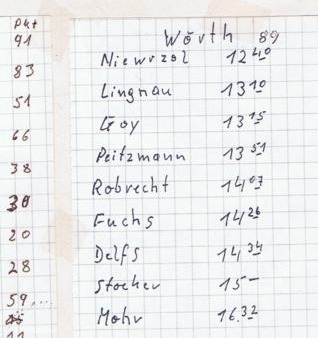 Pkt
Wörth 89
91 Niewrzol 12 40
83 Lingnau 13 10
51 Goy 13 15
66 Peitzmann 13 51
38 Robrecht 14 07
30 Fuchs 14 26
20 Delfs 14 34
28 Stocker 15 –
59 .... Mohr 16.32